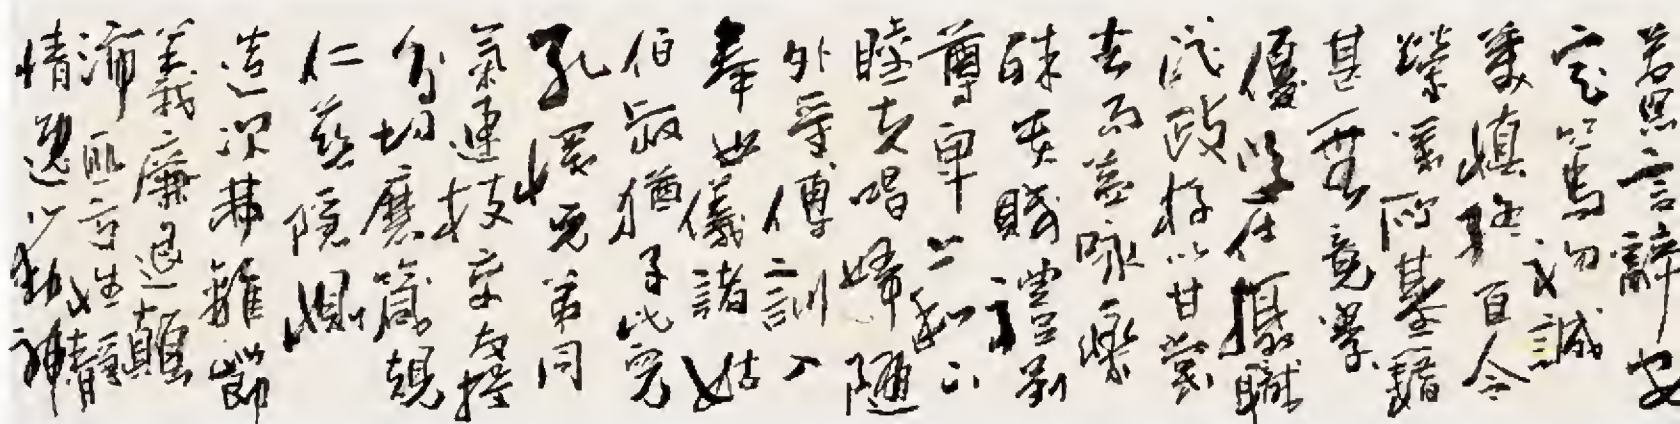 若思言辭安
定篤初誠
美慎終宜令
榮業所基籍
甚無竟學
優登仕攝職
從政存以甘棠
去而益詠樂
殊貴賤禮別
尊卑上和下
睦夫唱婦隨
外受傅訓入
奉母儀諸姑
伯叔猶子比兒
孔懷兄弟同
氣連枝交友投
分切磨箴規
仁慈隱惻
造次弗離節
義廉退顛
沛匪虧性靜
情逸心動神